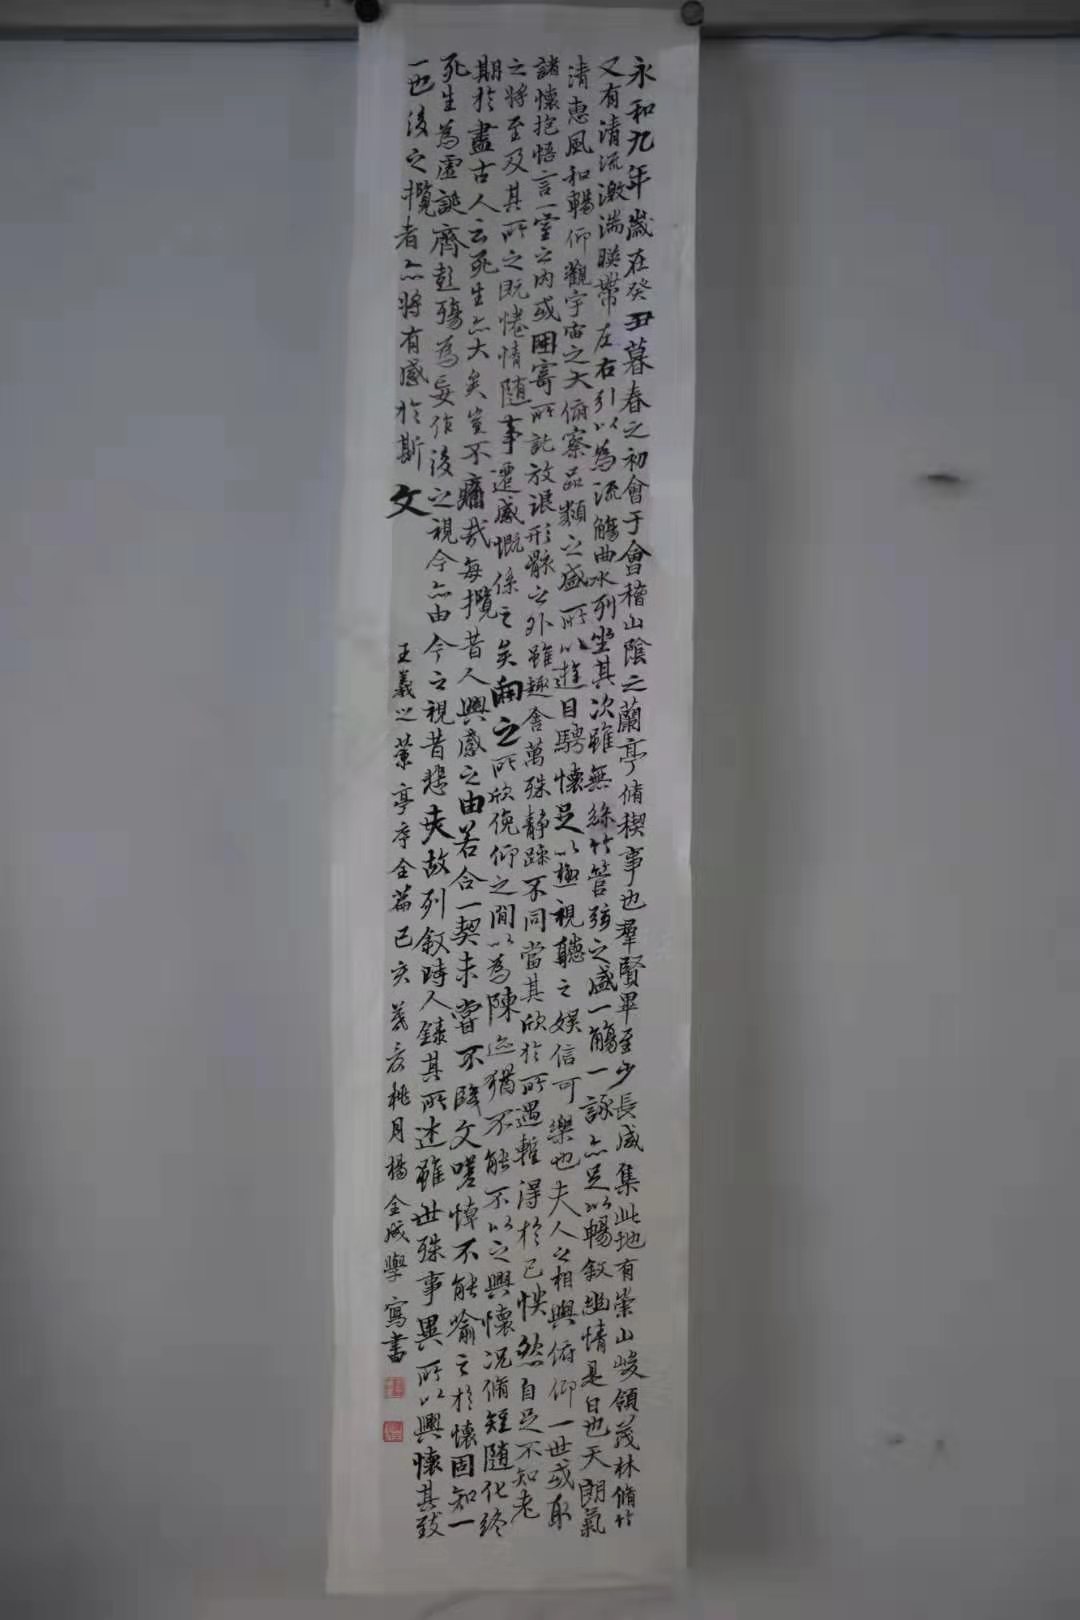 永和九年歲在癸丑暮春之初會于會稽山陰之蘭亭脩稧事也羣賢畢至少長咸集此地有崇山峻領茂林脩竹
又有清流激湍暎帶左右引以為流觴曲水列坐其次雖無絲竹管弦之盛一觴一詠亦足以暢敘幽情是日也天朗氣
清惠風和暢仰觀宇宙之大俯察品類之盛所以遊目騁懷足以極視聽之娛信可樂也夫人之相與俯仰一世或取
諸懷抱悟言一室之內或因寄所託放浪形骸之外雖趣舍萬殊靜躁不同當其欣於所遇暫得於己怏然自足不知老
之將至及其所之既惓情隨事遷感慨係之矣向之所欣俛仰之間以為陳迹猶不能不以之興懷況脩短隨化終
期於盡古人云死生亦大矣豈不痛哉每攬昔人興感之由若合一契未嘗不臨文嗟悼不能喻之於懷固知一
死生為虛誕齊彭殤為妄作後之視今亦由今之視昔悲夫故列敘時人錄其所述雖世殊事異所以興懷其致
一也後之攬者亦將有感於斯文
王羲之蘭亭序全篇己亥桃月楊金成學寫書